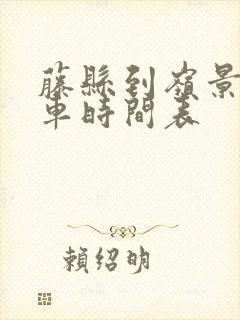 藤縣到嶺景
車時間表
賴紹明